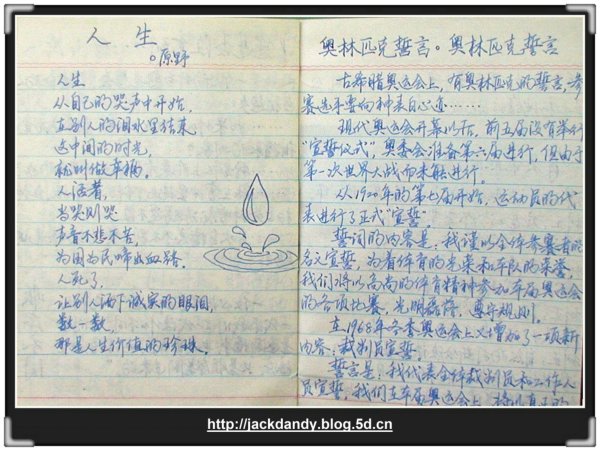 人生
。原野
人生
从自己的哭声中开始，
在别人的泪水里结束
这中间的时光，
就叫做幸福。
人活着，
当哭则哭
声音不悲不苦，
为国为民啼出血路。
人死了，
让别人洒下诚实的眼泪，
数一数，
那是人生价值的珍珠。
奥林匹克誓言。奥林匹克誓言
古希腊奥运会上，有奥林匹克的誓言，参
赛选手要向神来自心迹……
现代奥运会开幕以后，前五届没有举行
"宣誓仪式"，奥委会准备第六届进行，但由于
第一次世界大战而未能进行。
从1920年的第七届开始，运动员的代
表进行了正式"宣誓"
誓词的内容是，我谨以全体参赛者的
名义宣誓，为着体育的光荣和本队的荣誉，
我们将以高尚的体育精神参加本届奥运会
的各项比赛，光明磊落，遵守规则。
在1968年冬季奥运会上又增加了一项新
内容：裁判员宣誓。
誓言是，我代表全体裁判员和工作人
员宣誓，我们在本届奥运会上
http://jackdandy.blog.5d.cn